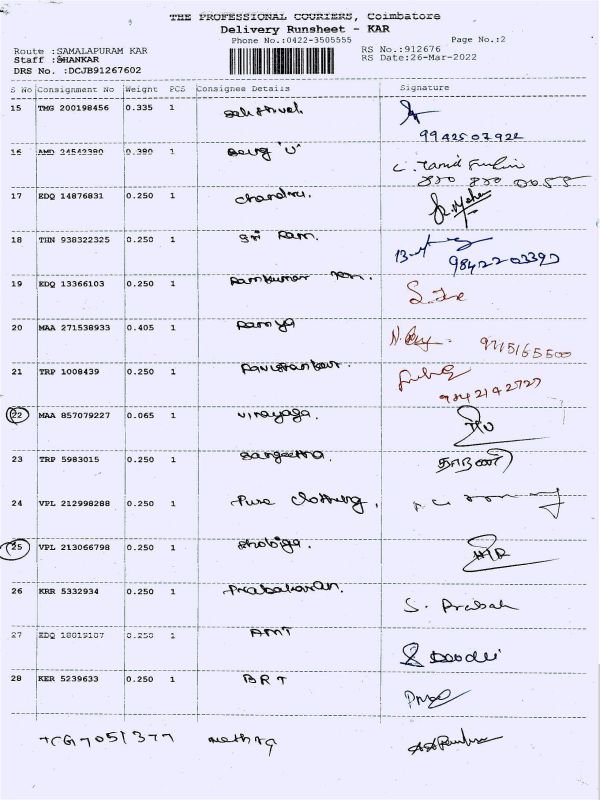 THE PROFESSIONAL COURIERS, Coimbatore
Delivery Runsheet - KAR
Phone No.:0422-3505555 Page No.:2
Route :SAMALAPURAM KAR RS No.:912676
Staff :SHANKAR RS Date:26-Mar-2022
DRS No. :DCJB91267602
S No Consignment No Weight PCS Consignee Details Signature
15 TMG 200198456 0.335 1
9942507922
16 AMD 24542380 0.380 1 "U" C. Tamil
17 EDQ 14876831 0.250 1 chandru.
18 THN 938322325 0.250 1 Sri Ram.
9842203397
19 EDQ 13366103 0.250 1 Ramkumar
20 MAA 271538933 0.405 1 Ramya
9715165500
21 TRP 1008439 0.250 1
9842142727
22 MAA 857079227 0.065 1 Vinayaga.
23 TRP 5983015 0.250 1 Sangeetha.
24 VPL 212998288 0.250 1 Pure Clothing,
25 VPL 213066798 0.250 1 Shobiga.
26 KRR 5332934 0.250 1 Prabakaran. S. Prabah
27 EDQ 18019107 0.250 1 AMT
28 KER 5239633 0.250 1 BRT
TCG7051377